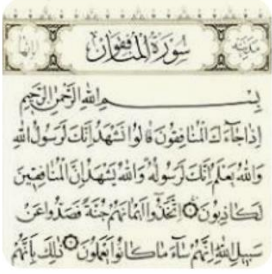 سورة المنافقون
مدنية
بسم الله الرحمن الرحيم
اذا جاءك المنافقون قالوا نشهد انك لرسول الله
والله يعلم انك لرسوله والله يشهد ان المنافقين
لكاذبون اتخذوا ايمانهم جنة فصدوا عن
سبيل الله انهم ساء ما كانوا يعملون ذلك بانهم